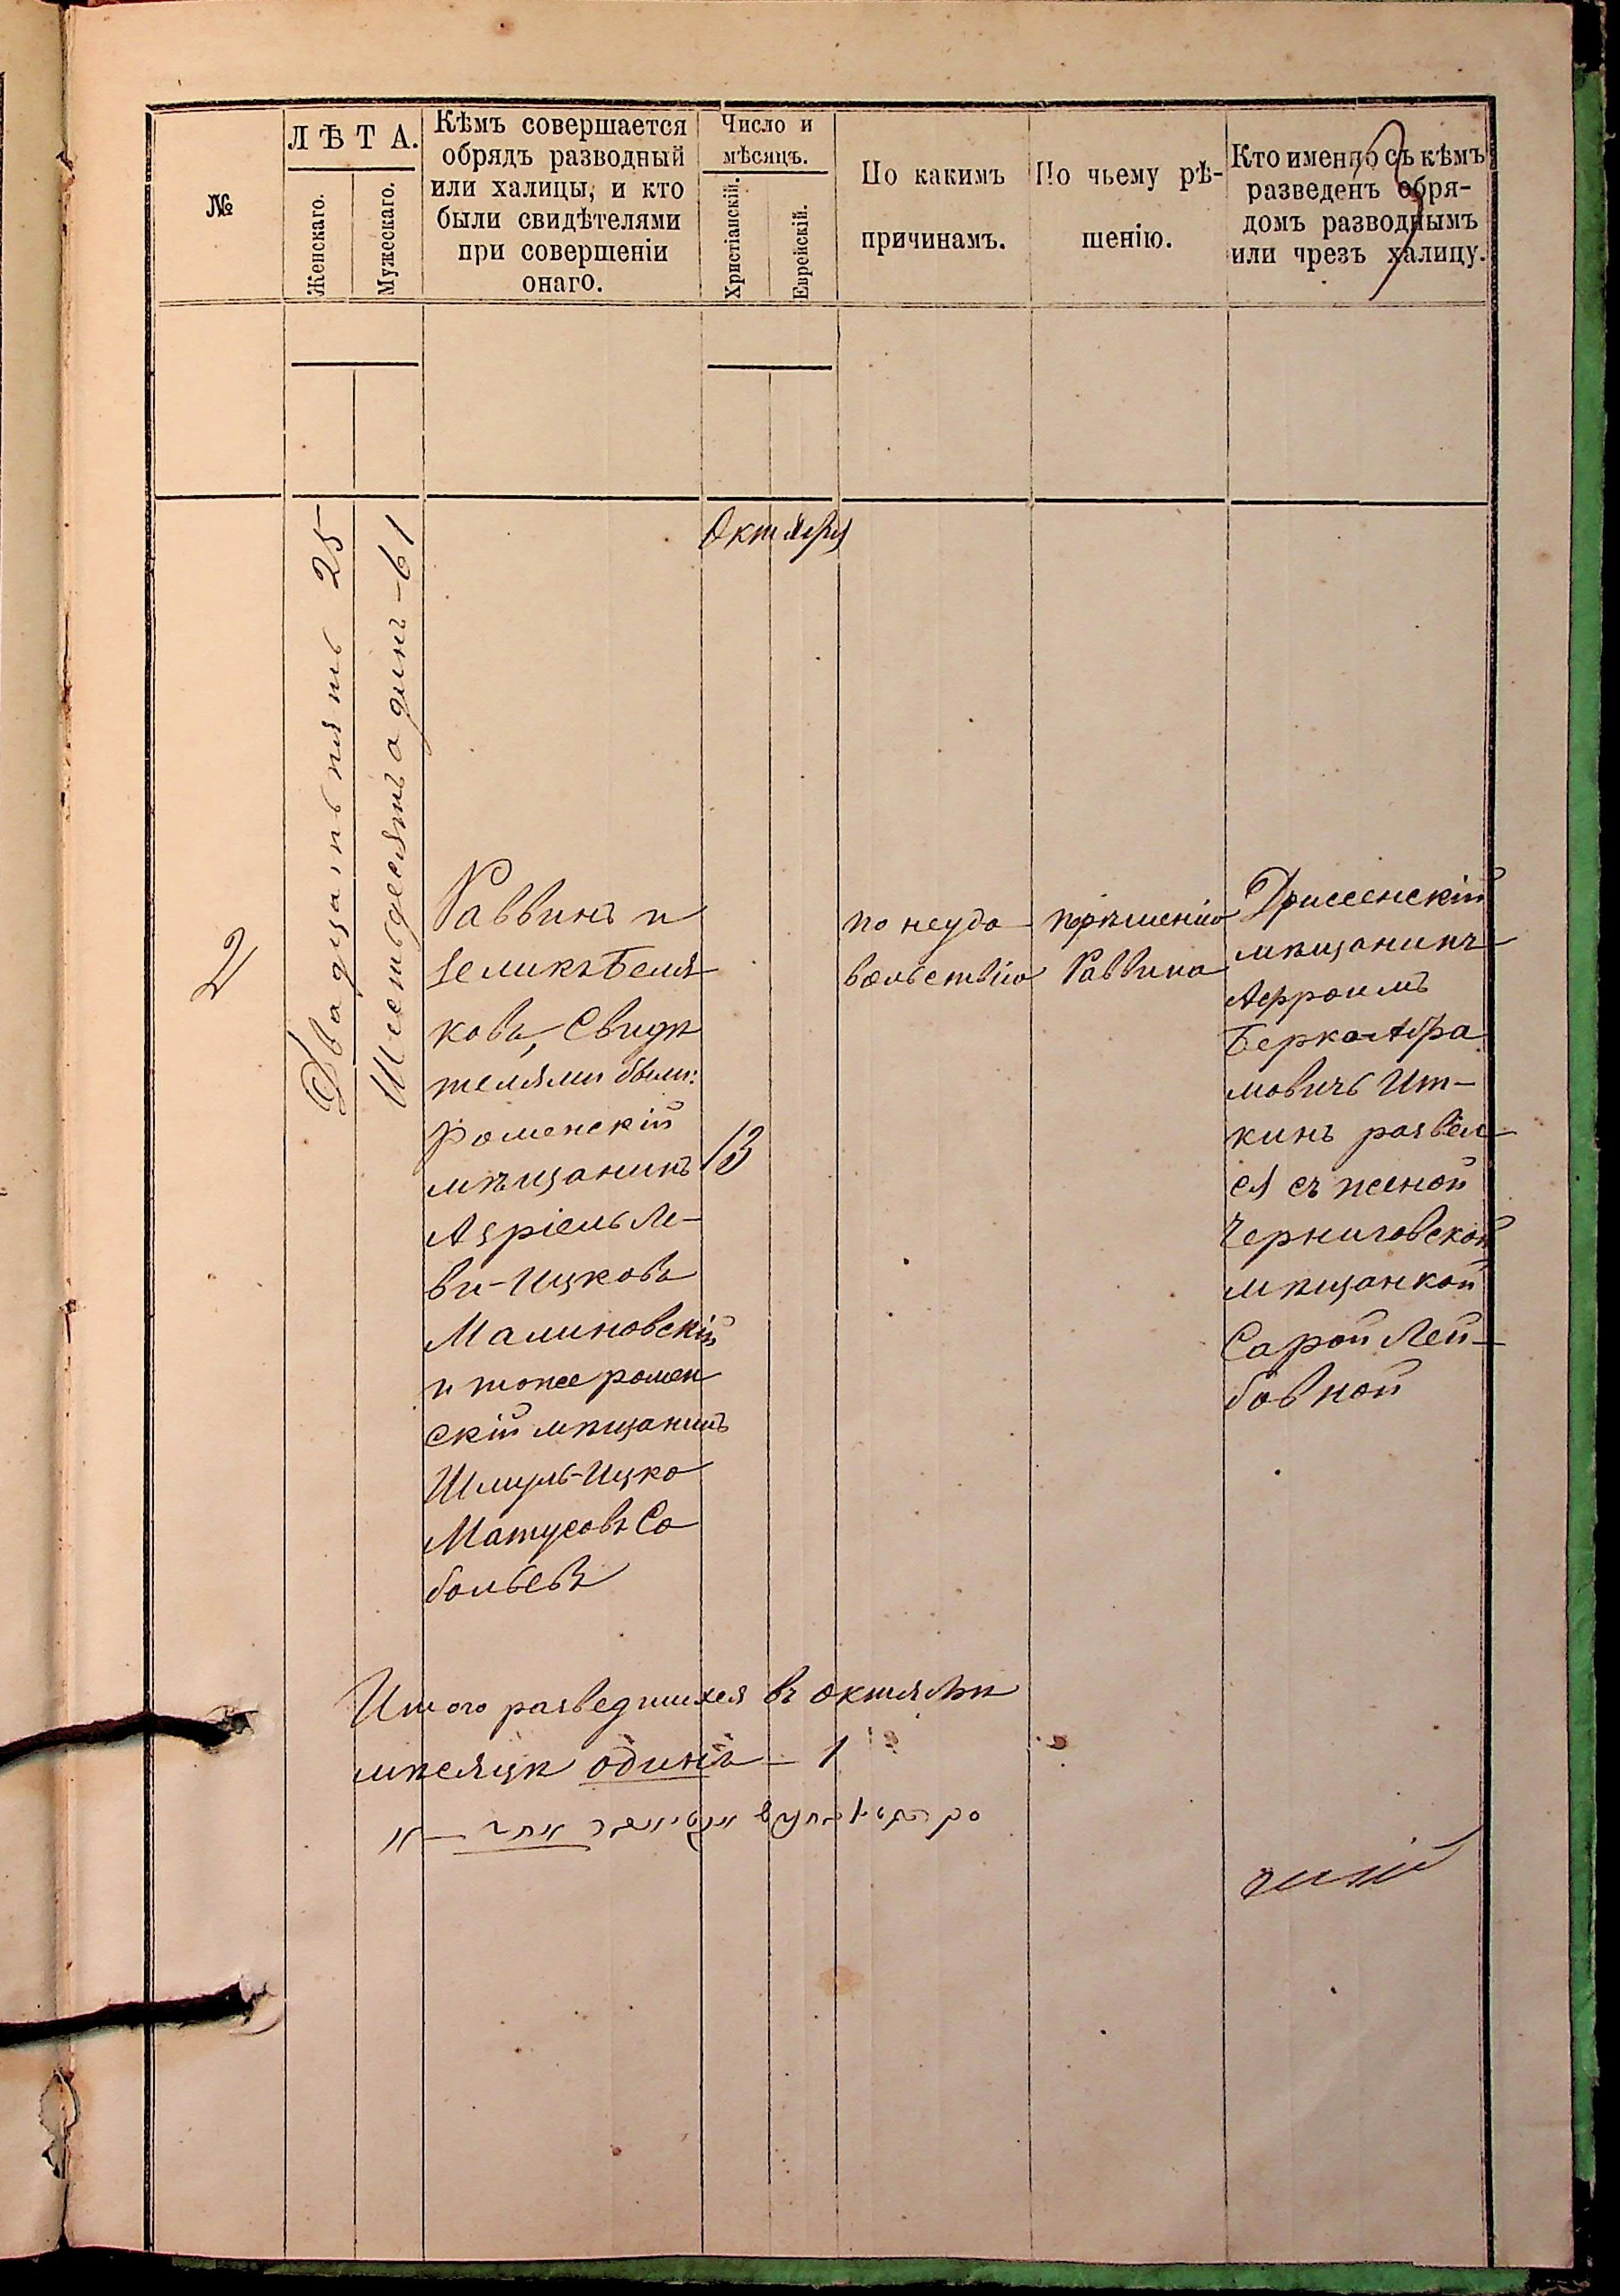 №
ЛѢТА.
Женскаго.
Мужескаго.
Кѣмъ совершается
обрядъ разводный
или халицы, и кто
были свидѣтелями
при совершеніи
онаго.
Число и
мѣсяцъ.
Христіанскій.
Еврейскій.
По какимъ
причинамъ.
По чьему рѣ-
шенію.
Кто именно съ кѣмъ
разведенъ обря-
домъ разводнымъ
или чрезъ халицу.
Октября
2
Двадцать пять 25
Шестьдесятъ одинъ - 61
Раввинъ и
Зеликъ Беля
ковъ, Свидѣ
телями были:
Роменскій
мѣщанинъ
Азріель Ле-
ви-Ицковъ
Малиновскій
и тоже ромен
скій мѣщанинъ
Шмуль-Ицко
Матусовъ Со
больевъ
13
по неудо
вольствію
по рѣшенію
Раввина
Дриссенскій
мѣщанинъ
Афроимъ
Берко-Абра
мовичъ Ит-
кинъ развел
ся съ женой
Черниговской
мѣщанкой
Сарой Лей-
бовной
Итого разведшихся въ октябрѣ
мѣсяцѣ одинъ - 1